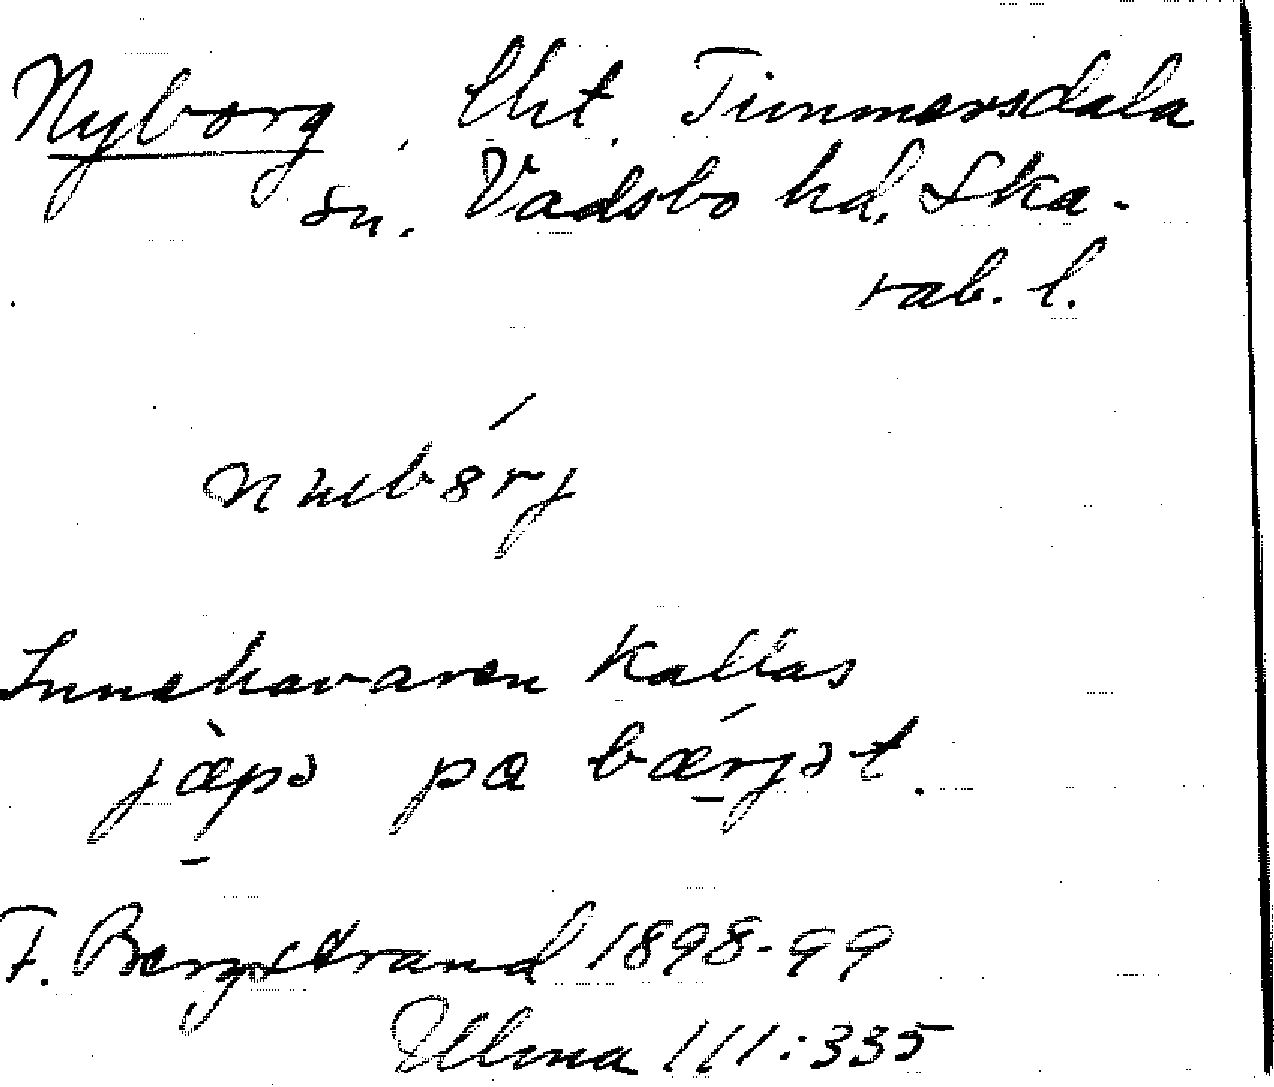 Nyborg, lht, Timmersdala
sn. Vadsbo hd. Ska-
rab. l.
Innehavaren kallas
jæ̀pə pa bǽrjət.
F. Bergstrand 1898-99
Ulma 111:335